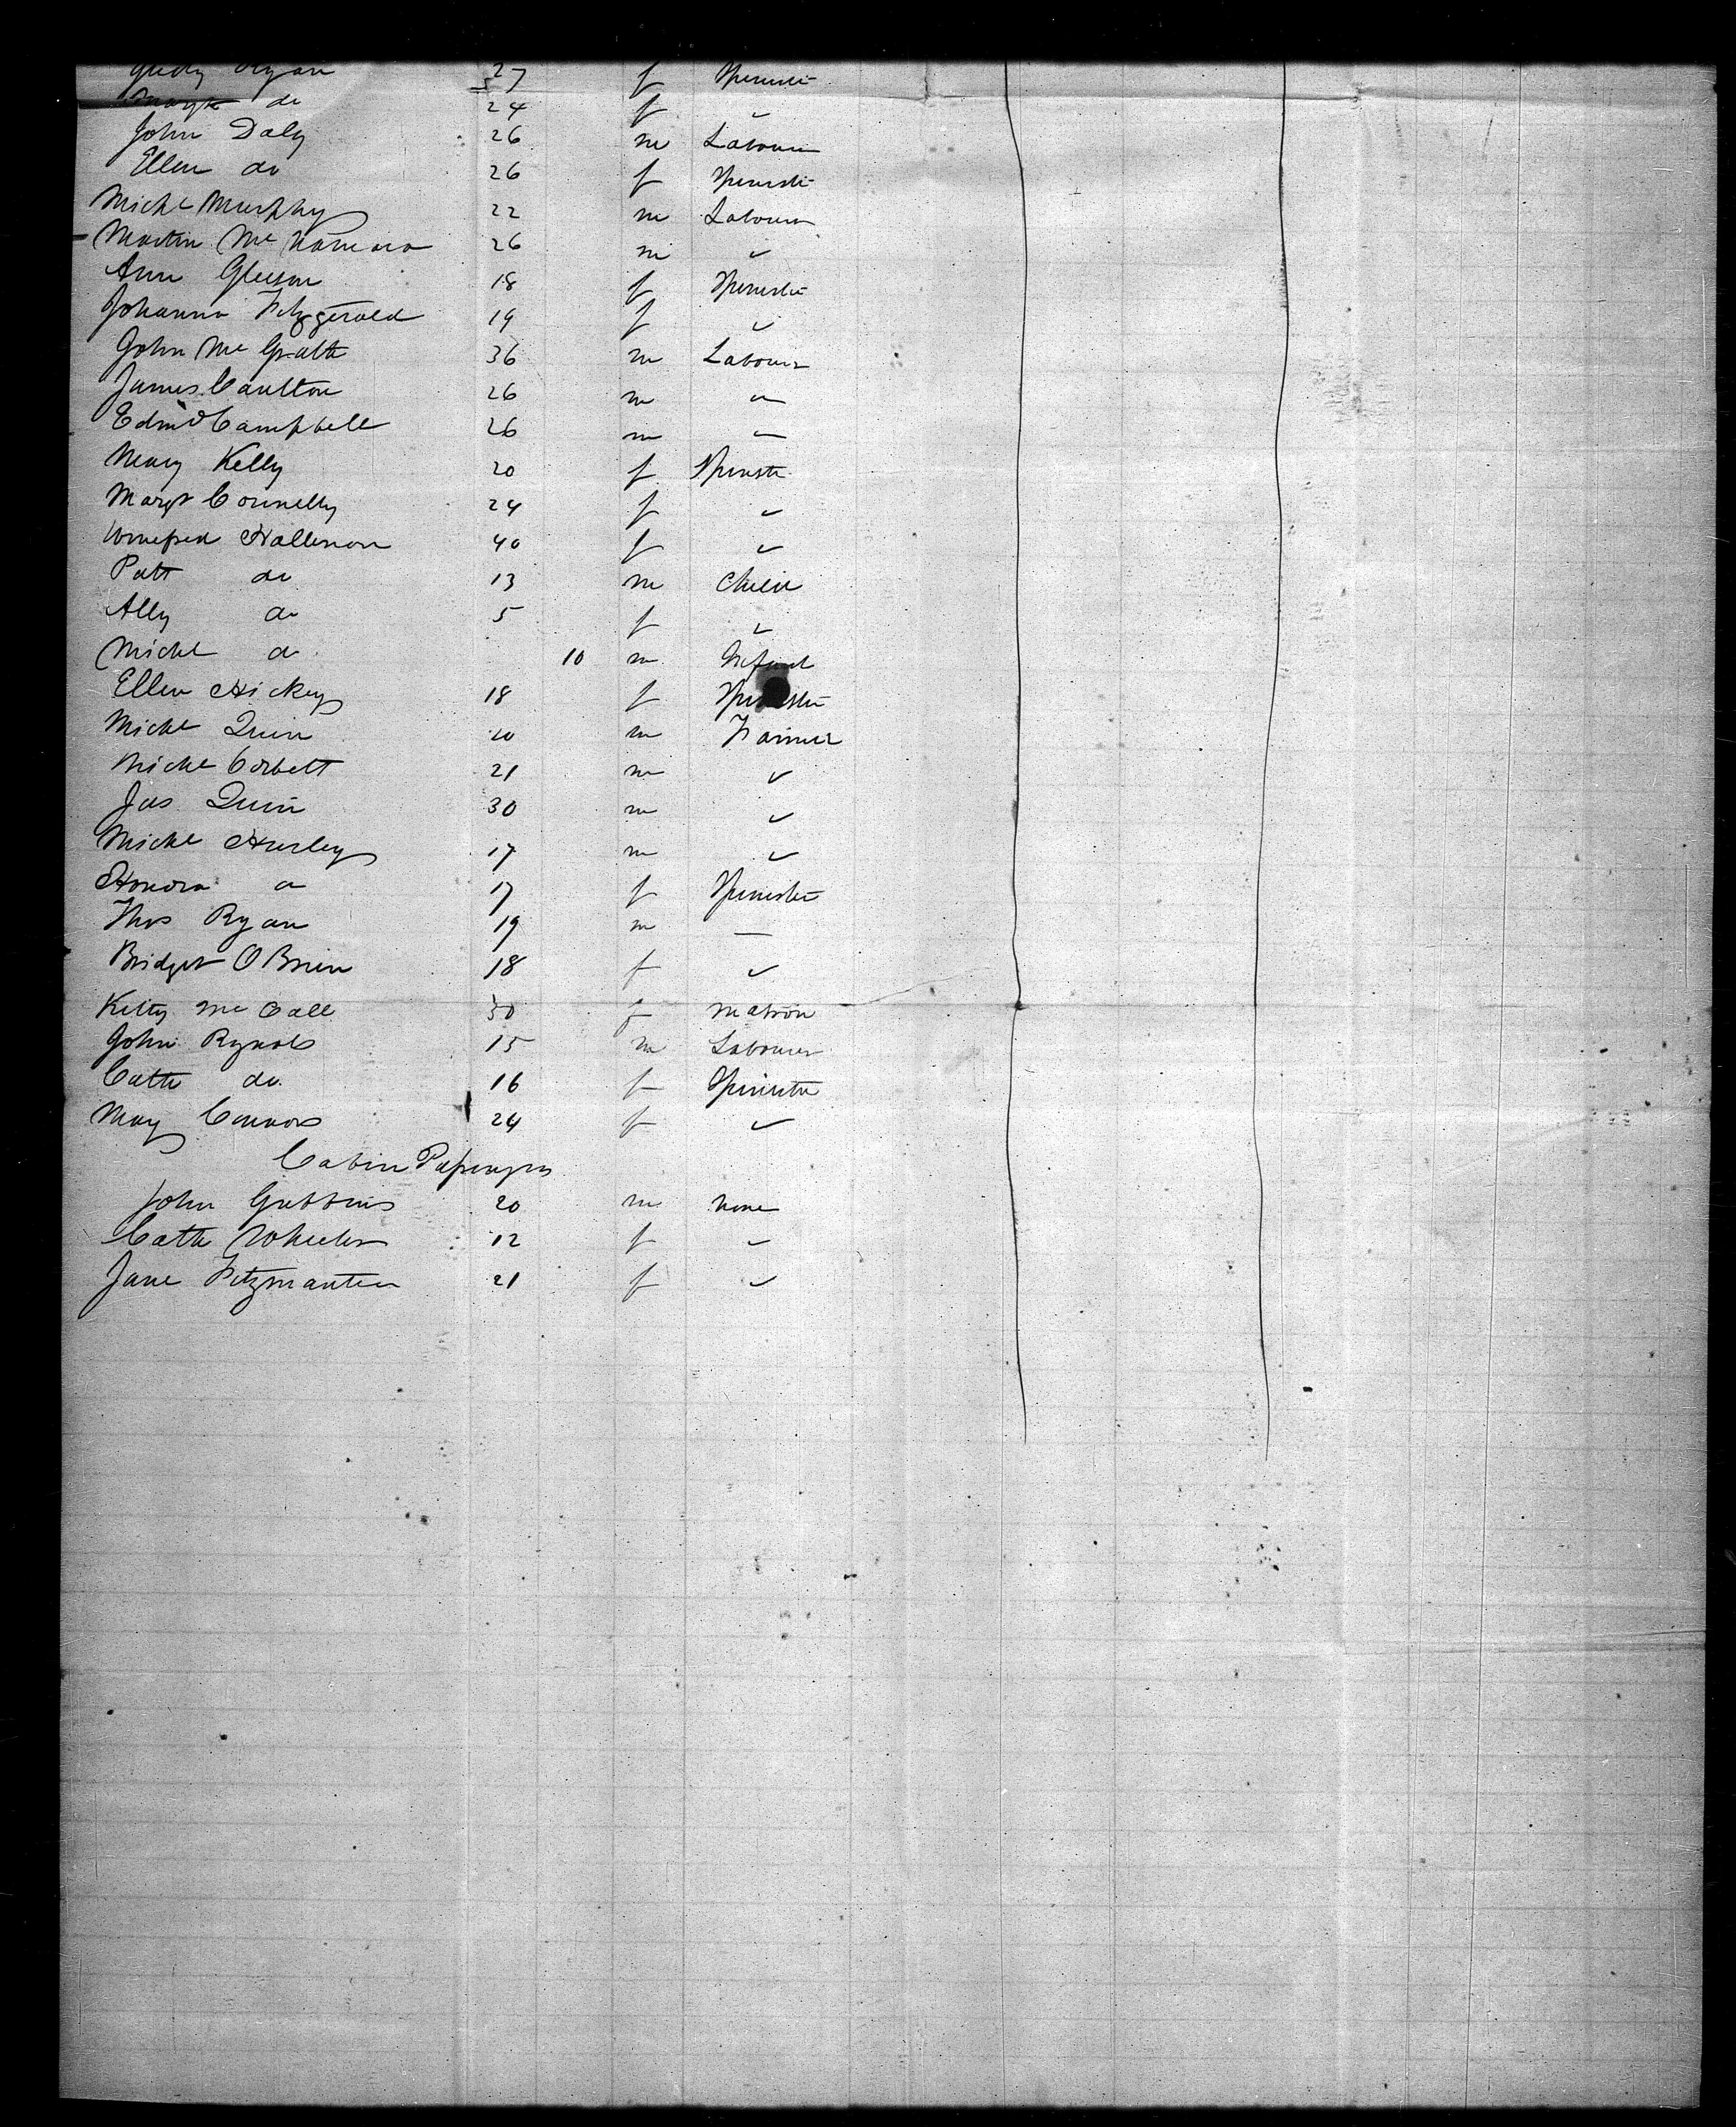 Judy Ryan 27 f Spinster
Margt do 24 f "
John Daly 26 m Labourer
Ellen do 26 f Spinster
Michl Murphy 22 m Labourer
Martin McNamara 26 m "
Ann Gleeson 18 f Spinster
Johanna Fitzgerald 19 f "
John McGrath 36 m Labourer
James Caulton 26 m "
Edmd Campbell 26 m "
Mary Kelly 20 f Spinster
Margt Connelly 24 f "
Winefred Hallenon 40 f "
Patt do 13 m Child
Ally do 5 f "
Michl do 10 m Infant
Ellen Hickey 18 f Spinster
Michl Quin 20 m Farmer
Michl Corbett 21 m "
Jas Quin 30 m "
Michl Hurley 17 m "
Honora do 17 f Spinster
Thos Ryan 19 m —
Bridget O Brien 18 f "
Kitty McCall 30 f Matron
John Rynols 15 m Labourer
Cath do 16 f Spinster
Mary Connors 24 f "
Cabin Passengers
John Gubbins 20 m None
Cath Wheeler 12 f "
Jane Fitzmaurice 21 f "